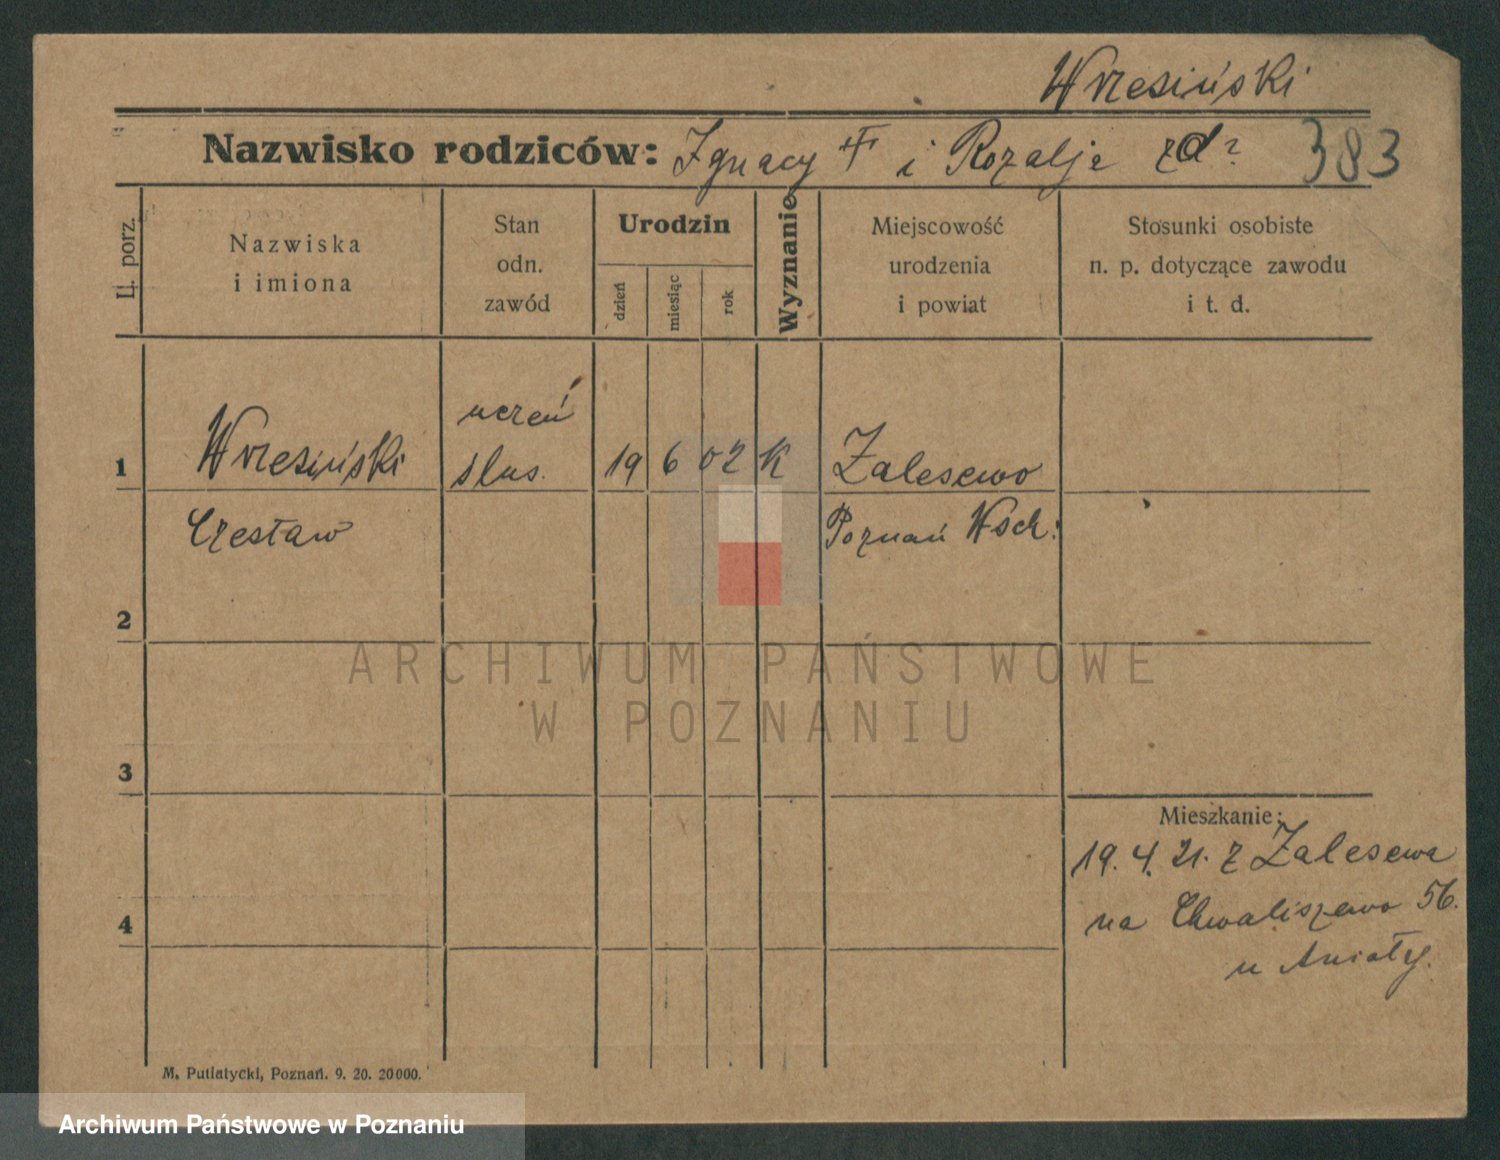 Wrzesiński
Nazwisko rodziców: Ignacy † i Rozalja zd?
383
Li. porz.
Nazwiska
i imiona
Stan
odn.
zawód
Urodzin
dzień
miesiąc
rok
Wyznanie
Miejscowość
urodzenia
i powiat
Stosunki osobiste
n. p. dotyczące zawodu
i t. d.
uczeń
1 Wrzesiński ślus. 19 6 02 K Zalesewo
Czesław Poznań Wsch:
2
ARCHIWUM PAŃSTWOWE
W POZNANIU
3
Mieszkanie:
19. 4. 21. z Zalesewa
na Chwaliszewo 56.
4
u Anioły.
M. Putiatycki, Poznań. 9. 20. 20000.
Archiwum Państwowe w Poznaniu